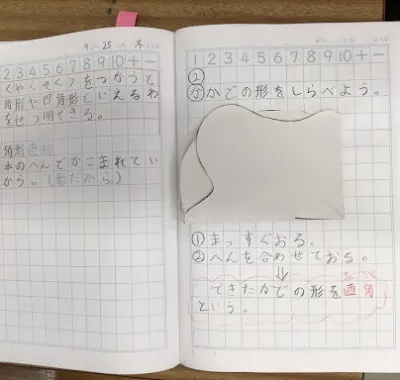 9 25 木
2 3 4 5 6 7 8 9 10 + −
くやくそくをつかうと
角形や四角形といえるわ
をせつ明できる。
角形
本のへんでかこまれてい
から。(形だから)
1 2 3 4 5 6 7 8 9 10 + −
②
か かどの形をしらべよう。
① まっすぐおる。
② へんを合わせておる。
↓
できたかどの形を直角
という。